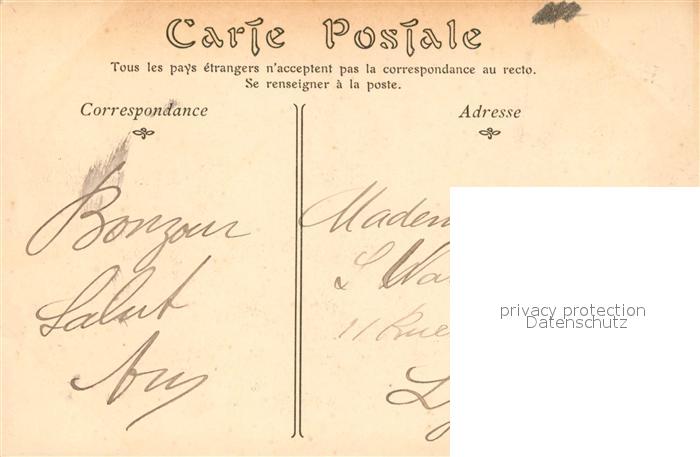 Carte Postale
Tous les pays étrangers n'acceptent pas la correspondance au recto.
Se renseigner à la poste.
Correspondance
Adresse
Bonzour
Salut
Madem
L
11 Rue
privacy protection
Datenschutz